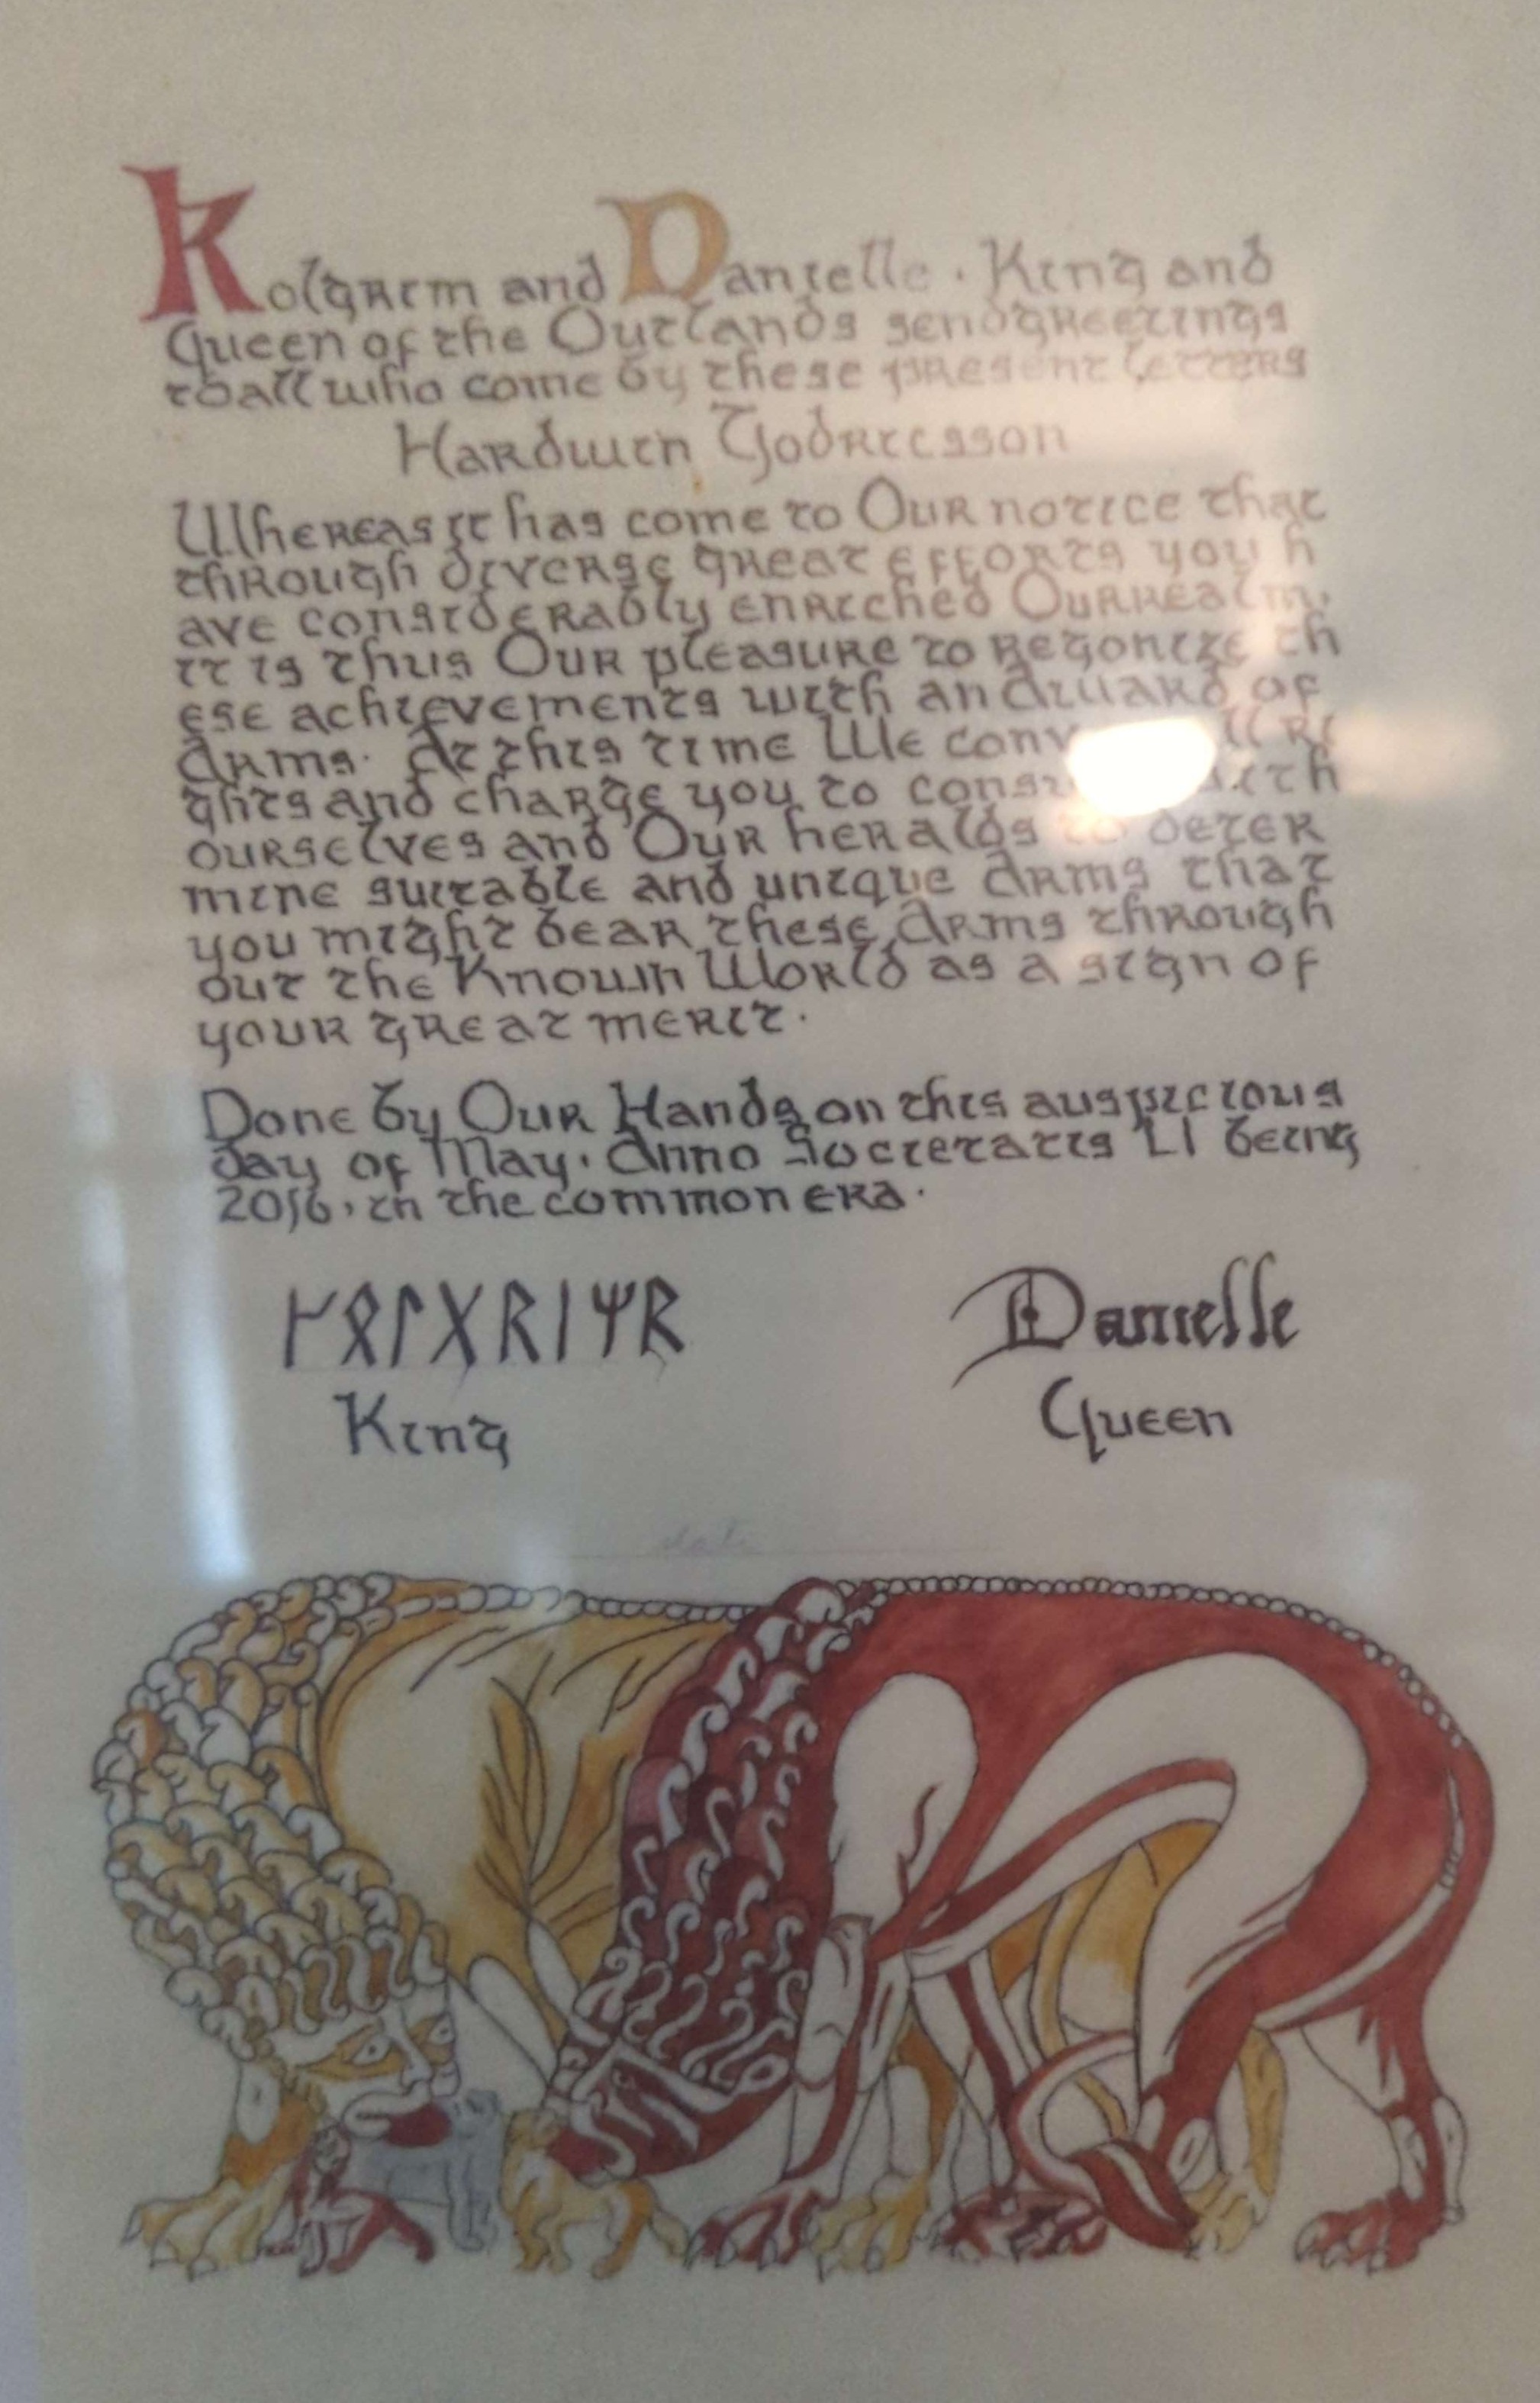 Kolgrim and Danielle · King and
Queen of the Outlands send greetings
to all who come by these present letters
Hardwin Godricsson
Whereas it has come to Our notice that
through diverse great efforts you h
ave considerably enriched Our realm,
it is thus Our pleasure to regonize th
ese achievements with an Award of
Arms. At this time We conv ll ri
ghts and charge you to consu ith
ourselves and Our heralds to deter
mine suitable and unique Arms that
you might bear these Arms through
out the Known World as a sign of
your great merit.
Done by Our Hands on this auspicious
day of May. Anno Societatis LI being
2016, in the common era.
ᚴᛟᛚᚷᚱᛁᛘᚱ Danielle
King Queen
date